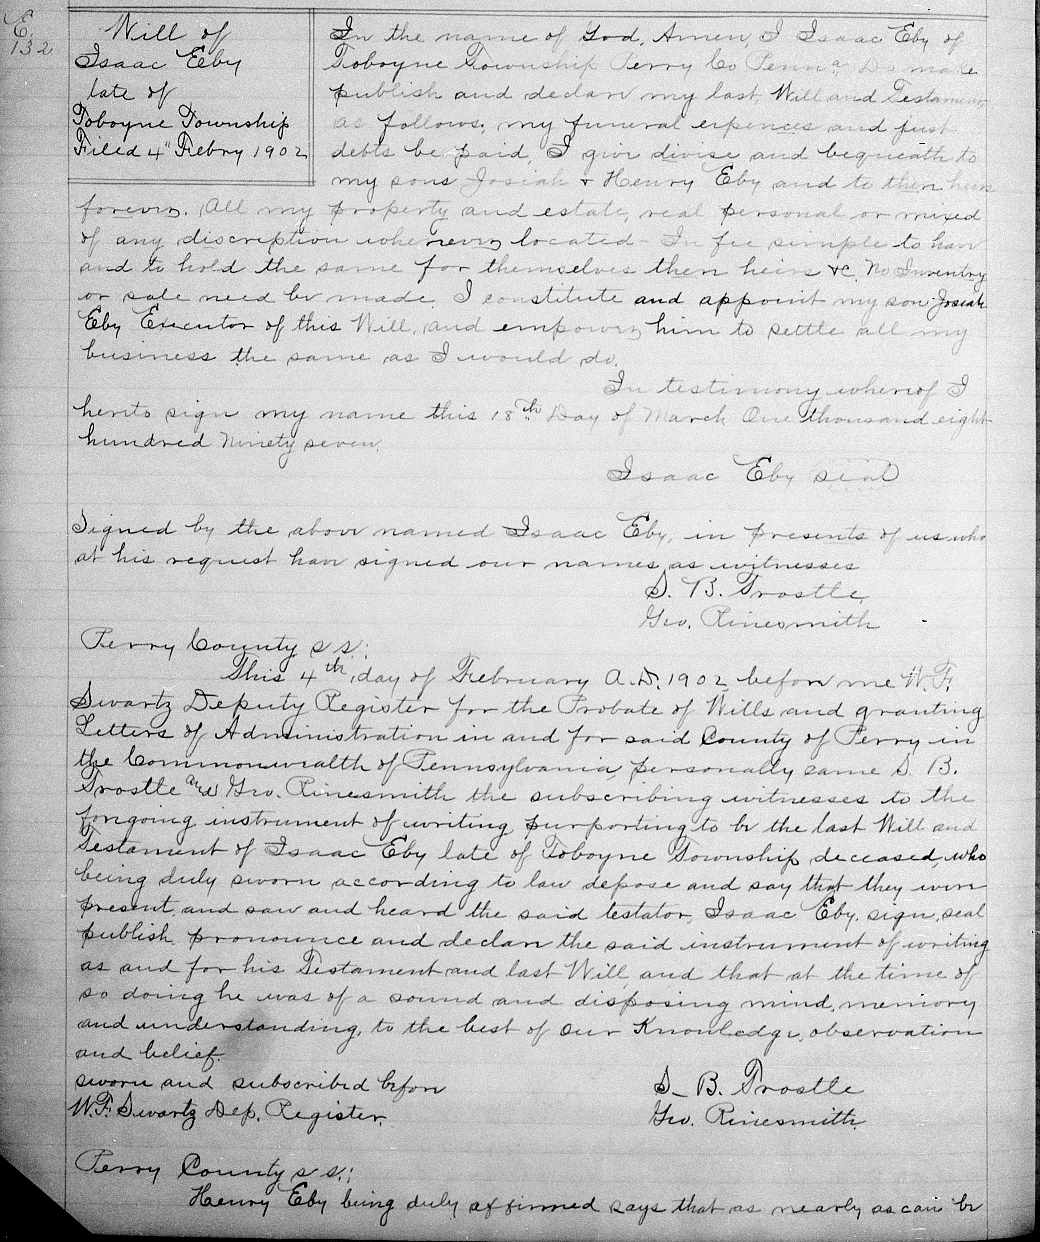 E.
132
Will of
Isaac Eby
late of
Toboyne Township
Filed 4" Febry 1902
In the name of God, Amen, I Isaac Eby of
Toboyne Township Perry Co Penna. Do make
publish and declare my last Will and Testament
as follows, my funeral expences and just
debts be paid, I give divise and bequeath to
my sons Josiah & Henry Eby and to their heirs
forever. All my property and estate, real personal or mixed
of any discreption wherever located - In fee simple to have
and to hold the same for themselves their heirs &c. No Inventry
or sale need be made. I constitute and appoint my son Josiah
Eby Executor of this Will, and empower him to settle all my
business the same as I would do.
In testimony whereof I
hereto sign my name this 18th Day of March One thousand eight
hundred Ninety seven.
Isaac Eby seal
Signed by the above named Isaac Eby, in presents of us who
at his request have signed our names as witnesses
S. B. Trostle
Geo. Rinesmith
Perry County ss:
This 4th day of February A.D. 1902 before me W. F.
Swartz Deputy Register for the Probate of Wills and granting
Letters of Administration in and for said County of Perry in
the Commonwealth of Pennsylvania, personally came S. B.
Trostle and Geo. Rinesmith the subscribing witnesses to the
foregoing instrument of writing purporting to be the last Will and
Testament of Isaac Eby late of Toboyne Township deceased, who
being duly sworn according to law depose and say that they were
present, and saw and heard the said testator, Isaac Eby, sign, seal
publish, pronounce and declare the said instrument of writing
as and for his Testament and last Will, and that at the time of
so doing he was of a sound and disposing mind, memory
and understanding, to the best of our Knowledge, observation
and belief.
sworn and subscribed before
W. F. Swartz Dep. Register.
S. B. Trostle
Geo. Rinesmith
Perry County ss:
Henry Eby being duly affirmed says that as nearly as can be